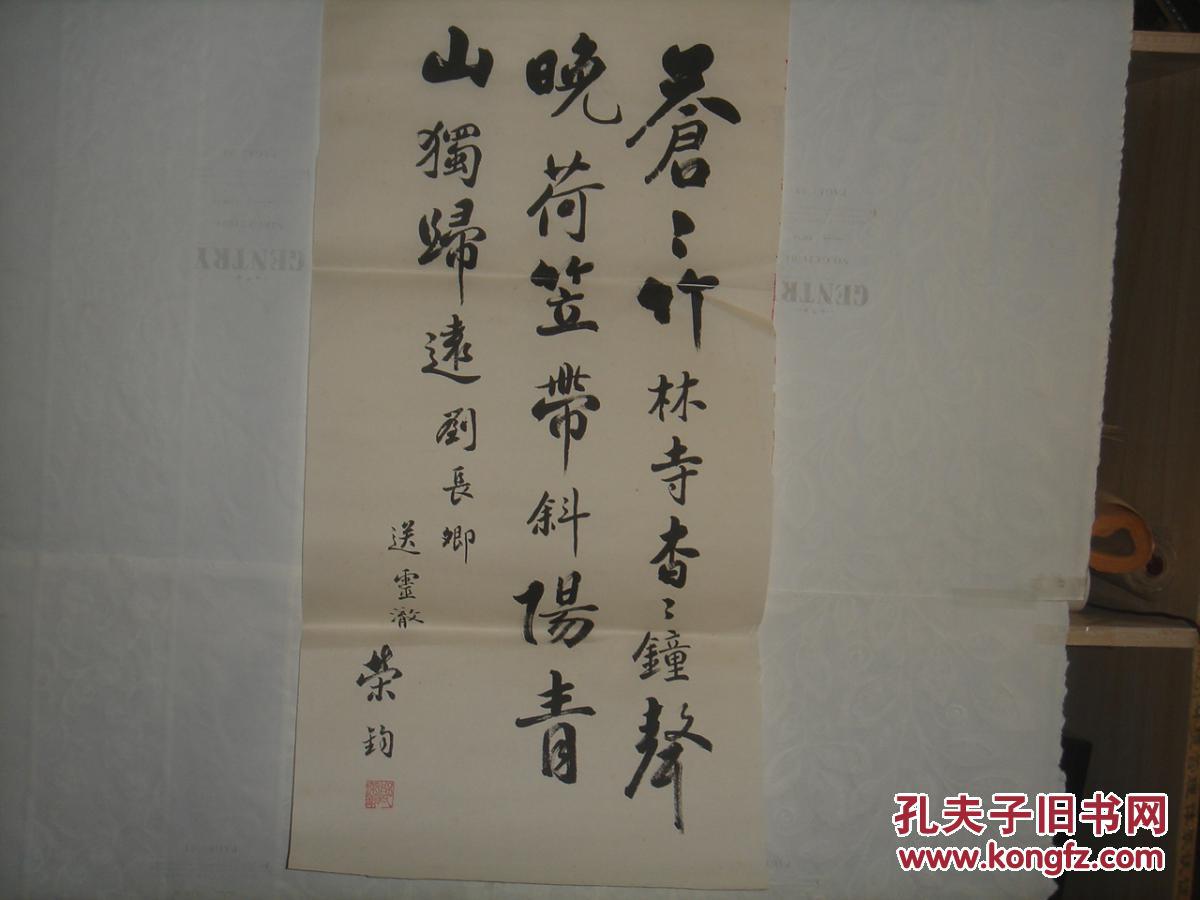 蒼〻竹林寺杳〻鐘聲
晚荷笠帶斜陽青
山獨歸遠劉長卿
送靈澈
榮鈞
GENTRY
GENTR
孔夫子旧书网
www.kongfz.com